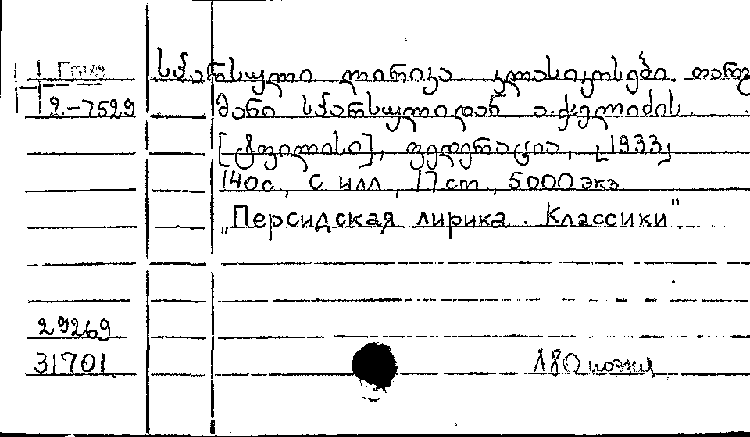 სპარსული ლირიკა კლასიკოსები. თარგ
2.-7529 მანი სპარსულიდან ა. ჭელიძის.
[ტფილისი], ფედერაცია, [1933]
140 с., с илл., 17 cm, 5000 экз
„Персидская лирика. Классики"
29269
31701